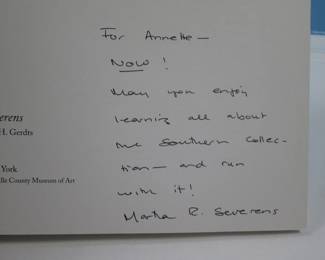 For Annette —
NOW!
May you enjoy
learning all about
the Southern Collec-
tion — and run
with it!
Martha R. Severens
erens
H. Gerdts
York
lle County Museum of Art